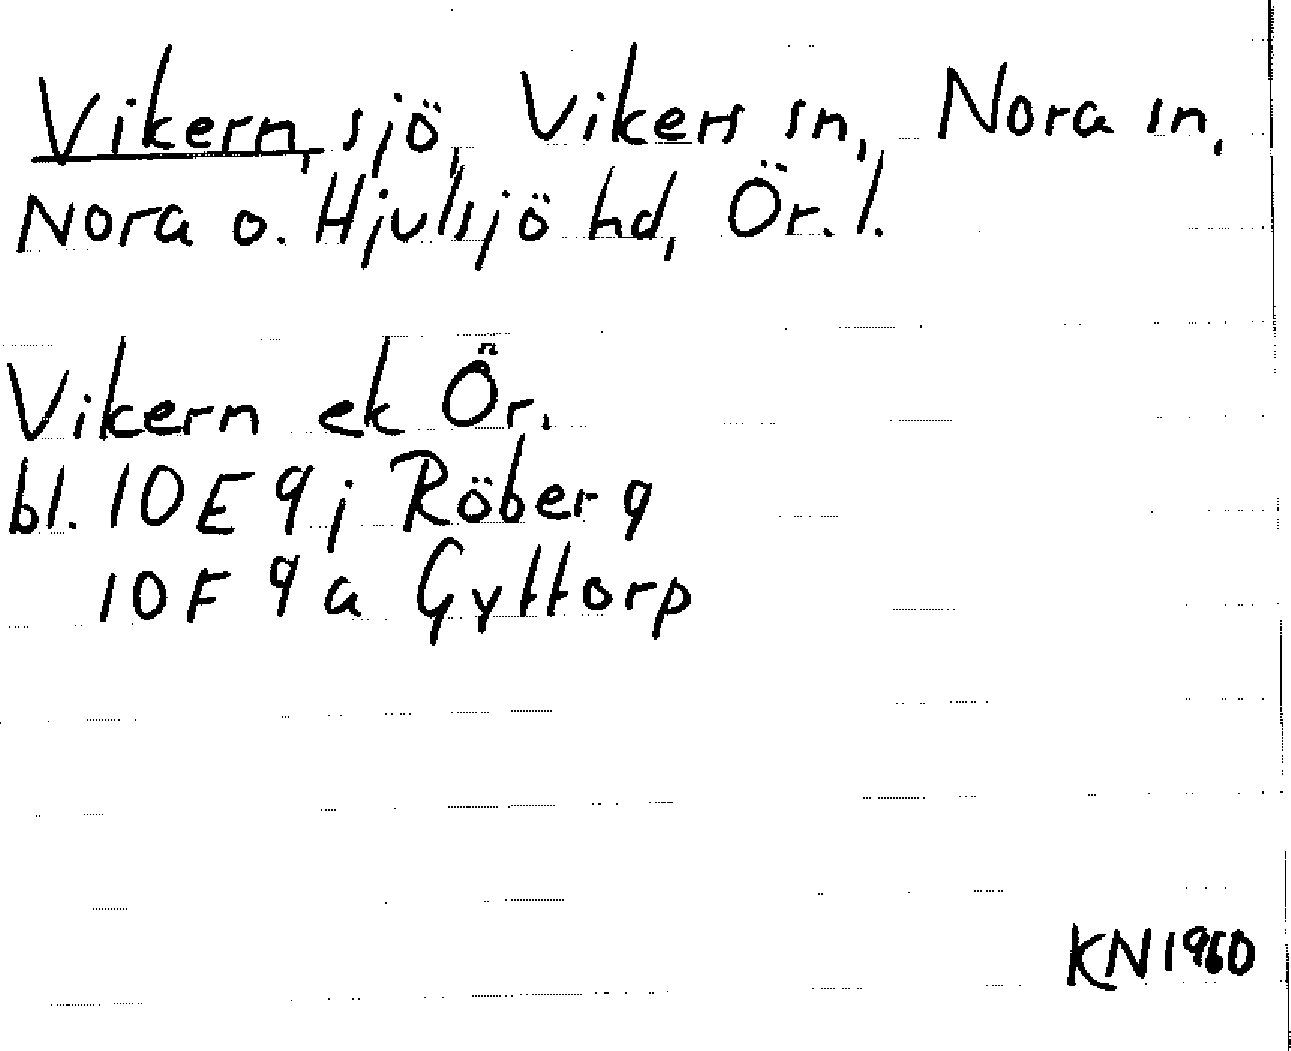 Vikern, sjö, Vikers sn, Nora sn,
Nora o. Hjulsjö hd, Ör. l.
Vikern ek Ör.
bl. 10E 9j Röberg
10F 9a Gyttorp
KN 1960